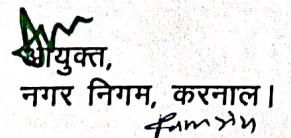 आयुक्त,
नगर निगम, करनाल।